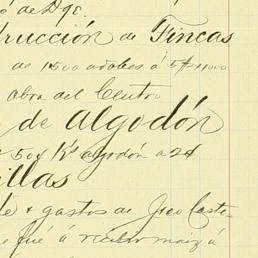 ó de Dqe.
rucción de Fincas
de 1500 adobes á 5 $ x 1000
obra del Centro
de algodón
50 q Ks algodón a 2 $
illas
te + gastos de Greo Caste-
e fué á recibir maiz á